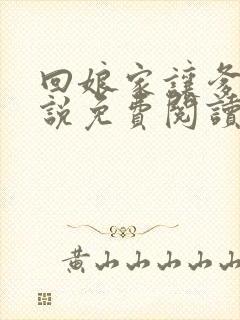 回娘家讓爹
說免費閱讀
黃山山山山